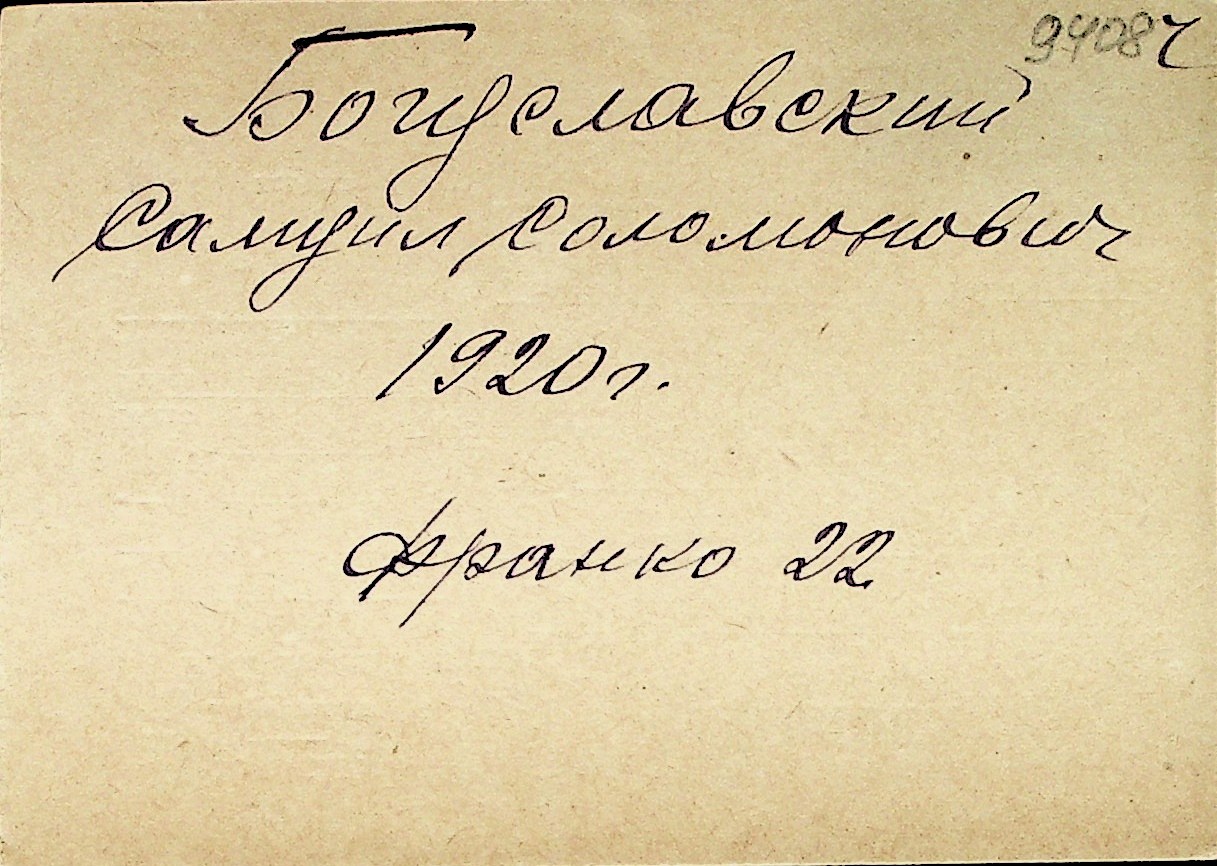 9408 ч
Богуславский
Самуил Соломонович
1920 г.
Франко 22